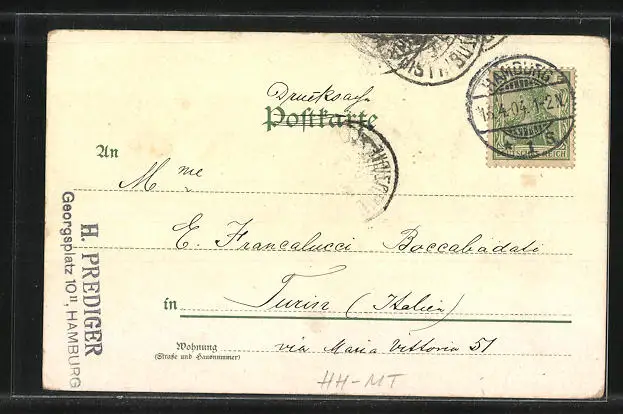 HAMBURG
14.4.04. 1-2 N.
* 1 S
DEUTSCHES REICH
Drucksache
Postkarte
An
Mme
E. Francalucci Boccabadati
in Turin (Italien)
Wohnung
(Straße und Hausnummer)
via Maria Vittoria 51
H. PREDIGER
Georgsplatz 10 II, HAMBURG
HH-MT